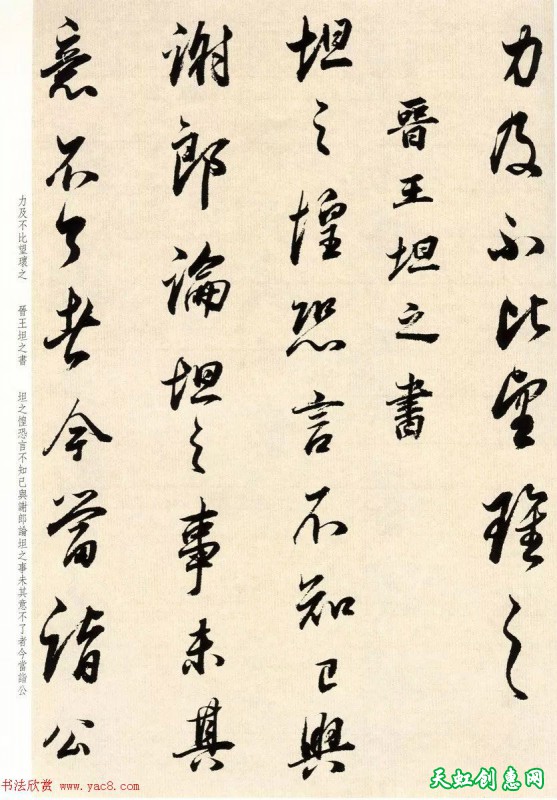 力及不比望瓌之
晉王坦之書
坦之惶恐言不知已與
謝郎論坦之事未其
意不了者今當詣公
力及不比望瓌之　晉王坦之書　坦之惶恐言不知已與謝郎論坦之事未其意不了者今當詣公
书法欣赏 www.yac8.com
天虹创惠网